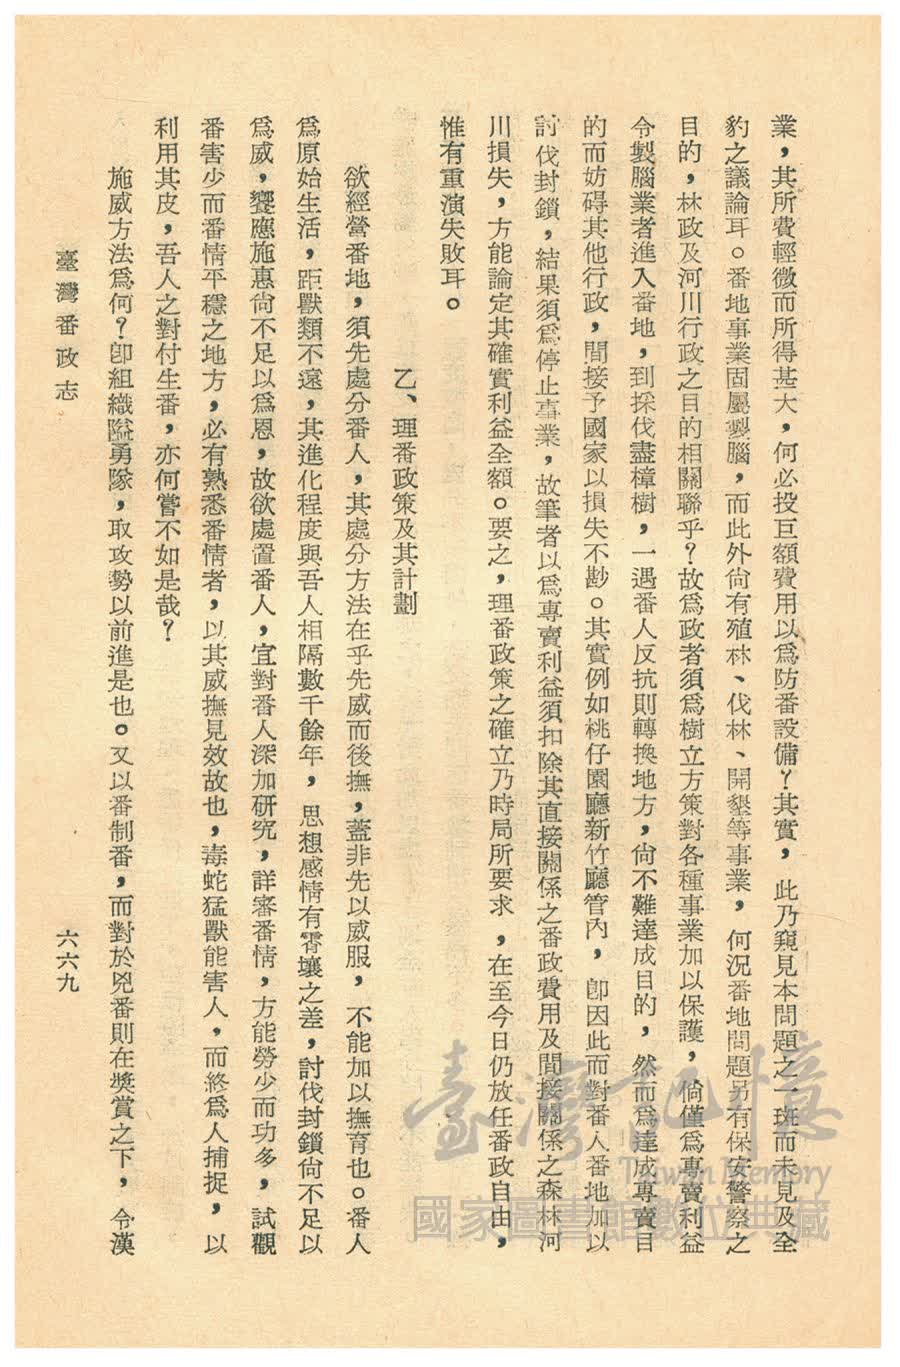 業，其所費輕微而所得甚大，何必投巨額費用以爲防番設備？其實，此乃窺見本問題之一斑而未見及全
豹之議論耳。番地事業固屬製腦，而此外尙有殖林、伐林、開墾等事業，何況番地問題另有保安警察之
目的，林政及河川行政之目的相關聯乎？故爲政者須爲樹立方策對各種事業加以保護，倘僅爲專賣利益
令製腦業者進入番地，到採伐盡樟樹，一遇番人反抗則轉換地方，尙不難達成目的，然而爲達成專賣目
的而妨碍其他行政，間接予國家以損失不尠。其實例如桃仔園廳新竹廳管內，卽因此而對番人番地加以
討伐封鎖，結果須爲停止事業，故筆者以爲專賣利益須扣除其直接關係之番政費用及間接關係之森林河
川損失，方能論定其確實利益全額。要之，理番政策之確立乃時局所要求，在至今日仍放任番政自由，
惟有重演失敗耳。
乙、理番政策及其計劃
欲經營番地，須先處分番人，其處分方法在乎先威而後撫，蓋非先以威服，不能加以撫育也。番人
爲原始生活，距獸類不遠，其進化程度與吾人相隔數千餘年，思想感情有霄壤之差，討伐封鎖尙不足以
爲威，饗應施惠尙不足以爲恩，故欲處置番人，宜對番人深加硏究，詳審番情，方能勞少而功多，試觀
番害少而番情平穩之地方，必有熟悉番情者，以其威撫見效故也，毒蛇猛獸能害人，而終爲人捕捉，以
利用其皮，吾人之對付生番，亦何嘗不如是哉？
施威方法爲何？卽組織隘勇隊，取攻勢以前進是也。又以番制番，而對於兇番則在奬賞之下，令漢
臺灣番政志
六六九
臺灣記憶
Taiwan Memory
國家圖書館數位典藏